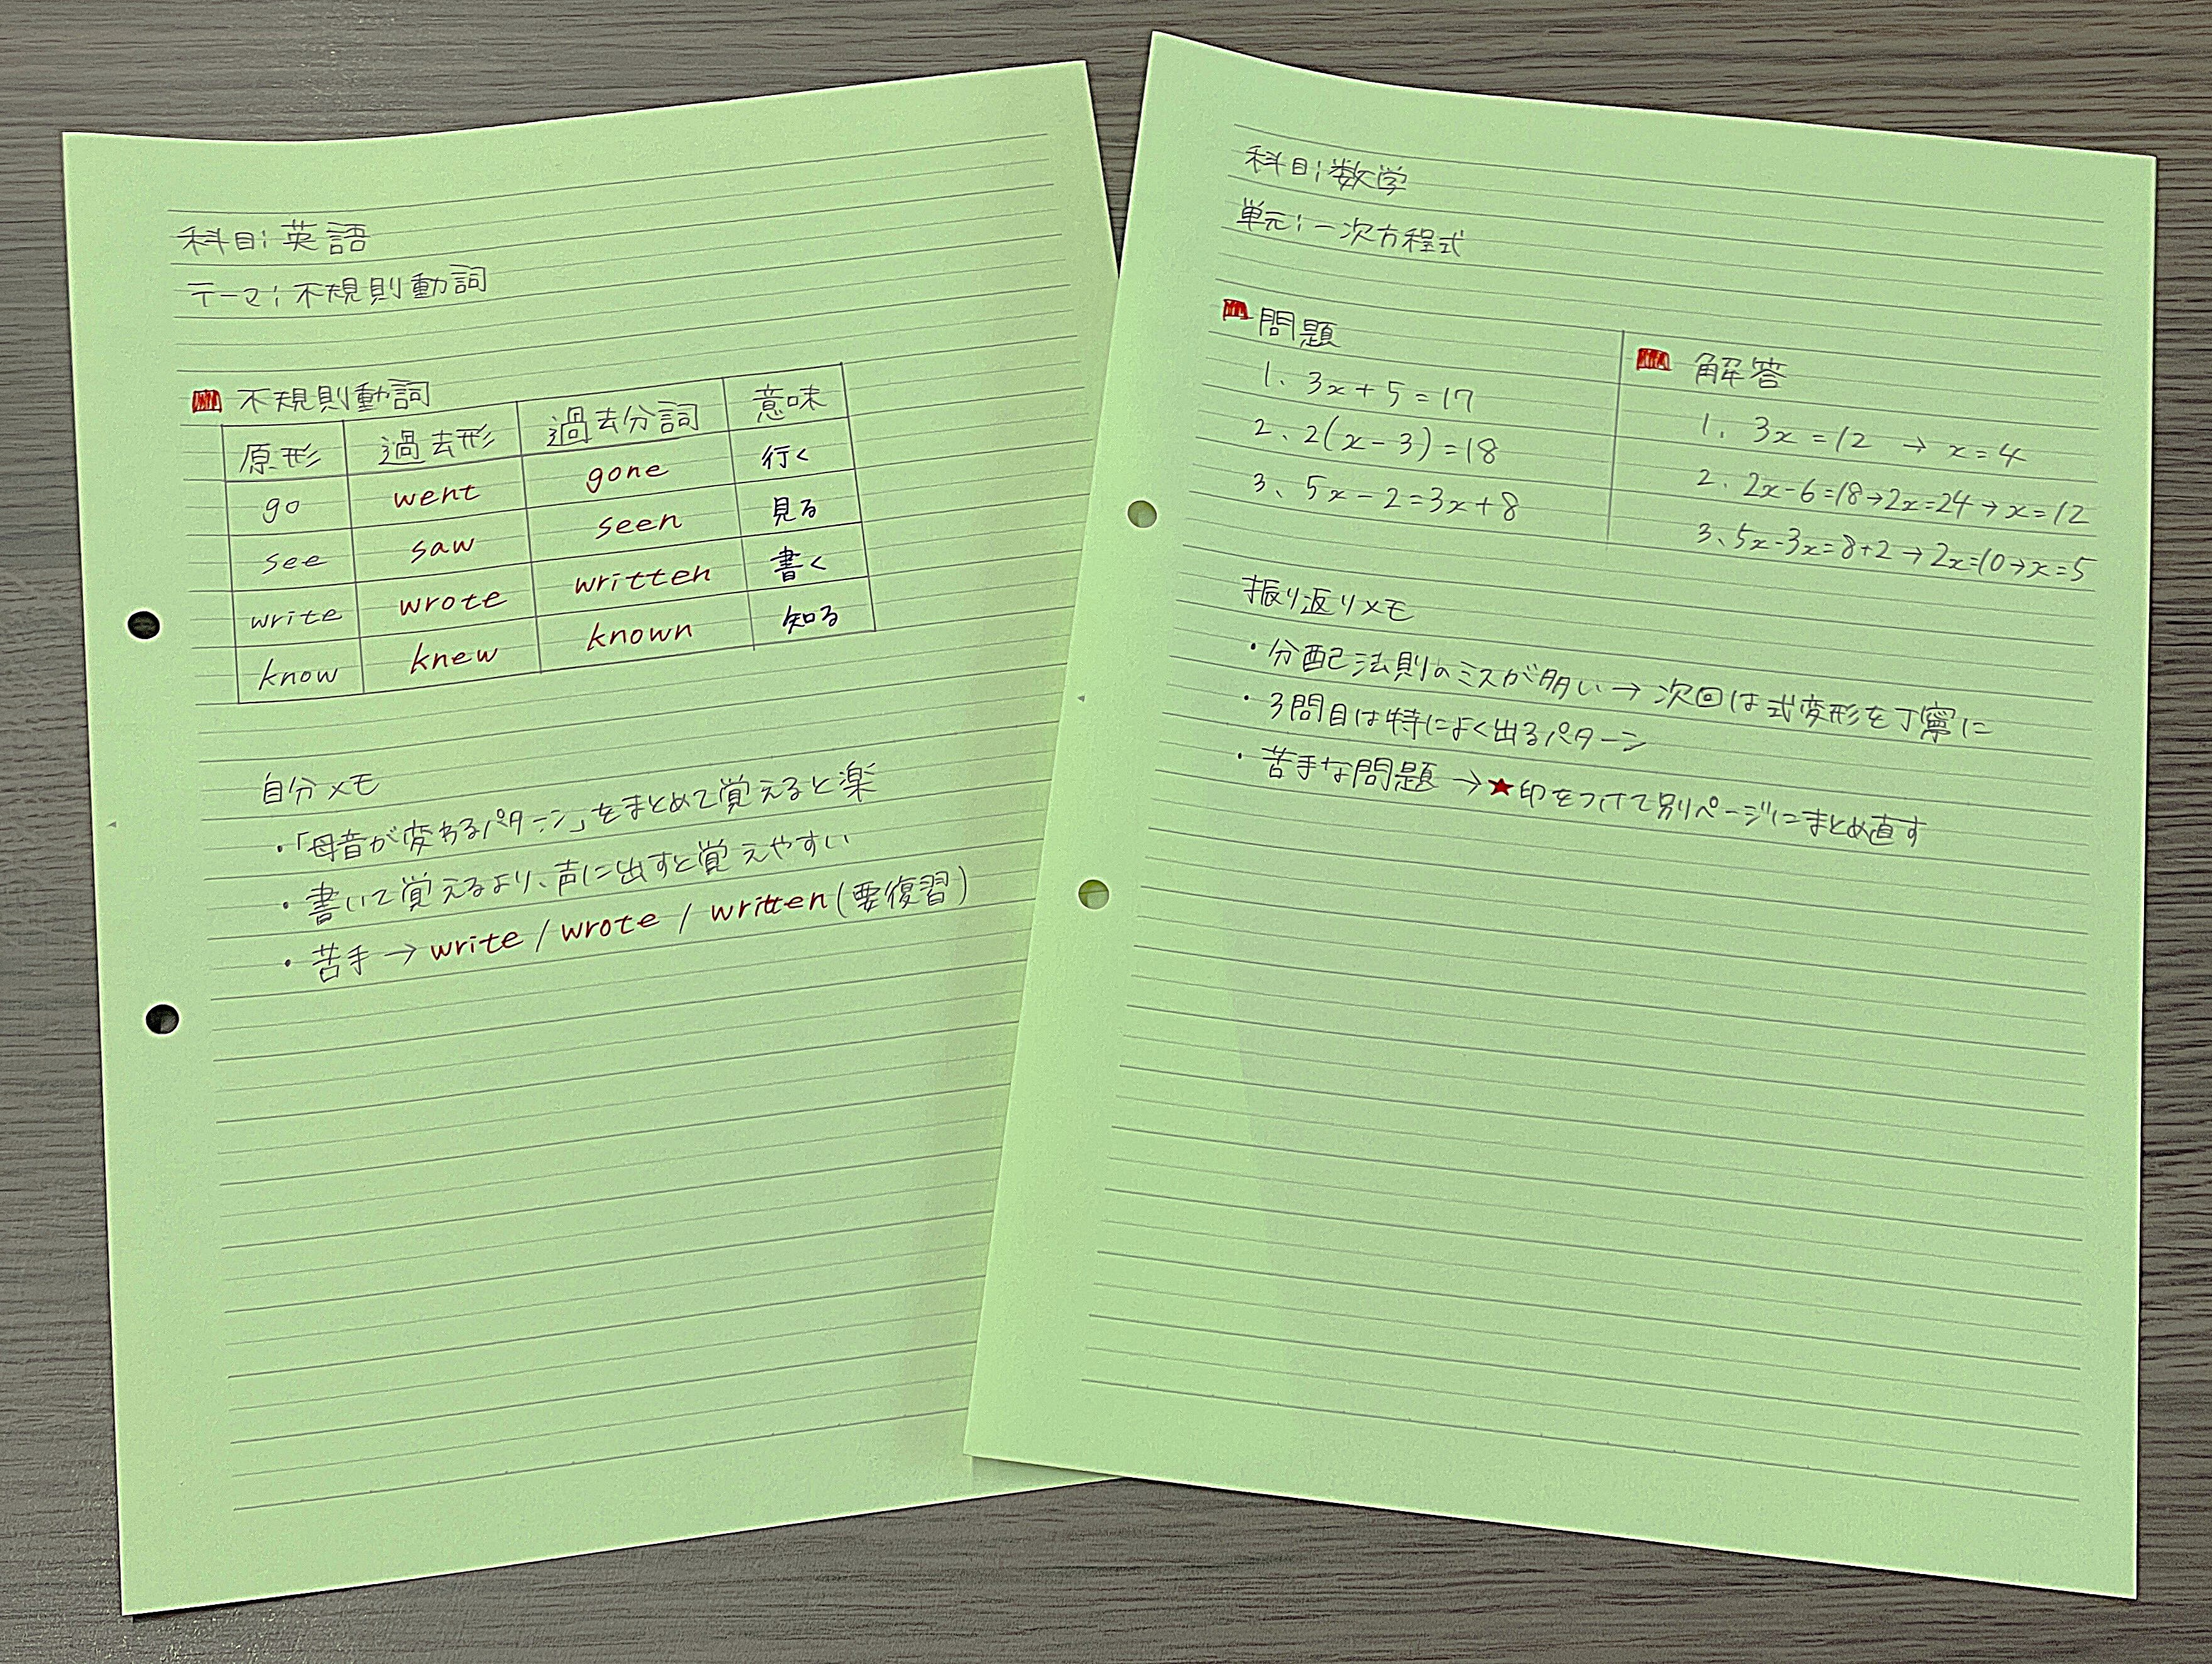 科目:英語
テーマ:不規則動詞
不規則動詞
原形 過去形 過去分詞 意味
go went gone 行く
see saw seen 見る
write wrote written 書く
know knew known 知る
自分メモ
・「母音が変わるパターン」をまとめて覚えると楽
・書いて覚えるより、声に出すと覚えやすい
・苦手→write / wrote / written(要復習)
科目:数学
単元:一次方程式
問題
1、3x+5=17
2、2(x-3)=18
3、5x-2=3x+8
解答
1、3x=12 → x=4
2、2x-6=18→2x=24→x=12
3、5x-3x=8+2→2x=10→x=5
振り返りメモ
・分配法則のミスが多い→次回は式変形を丁寧に
・3問目は特によく出るパターン
・苦手な問題→★印をつけて別ページにまとめ直す